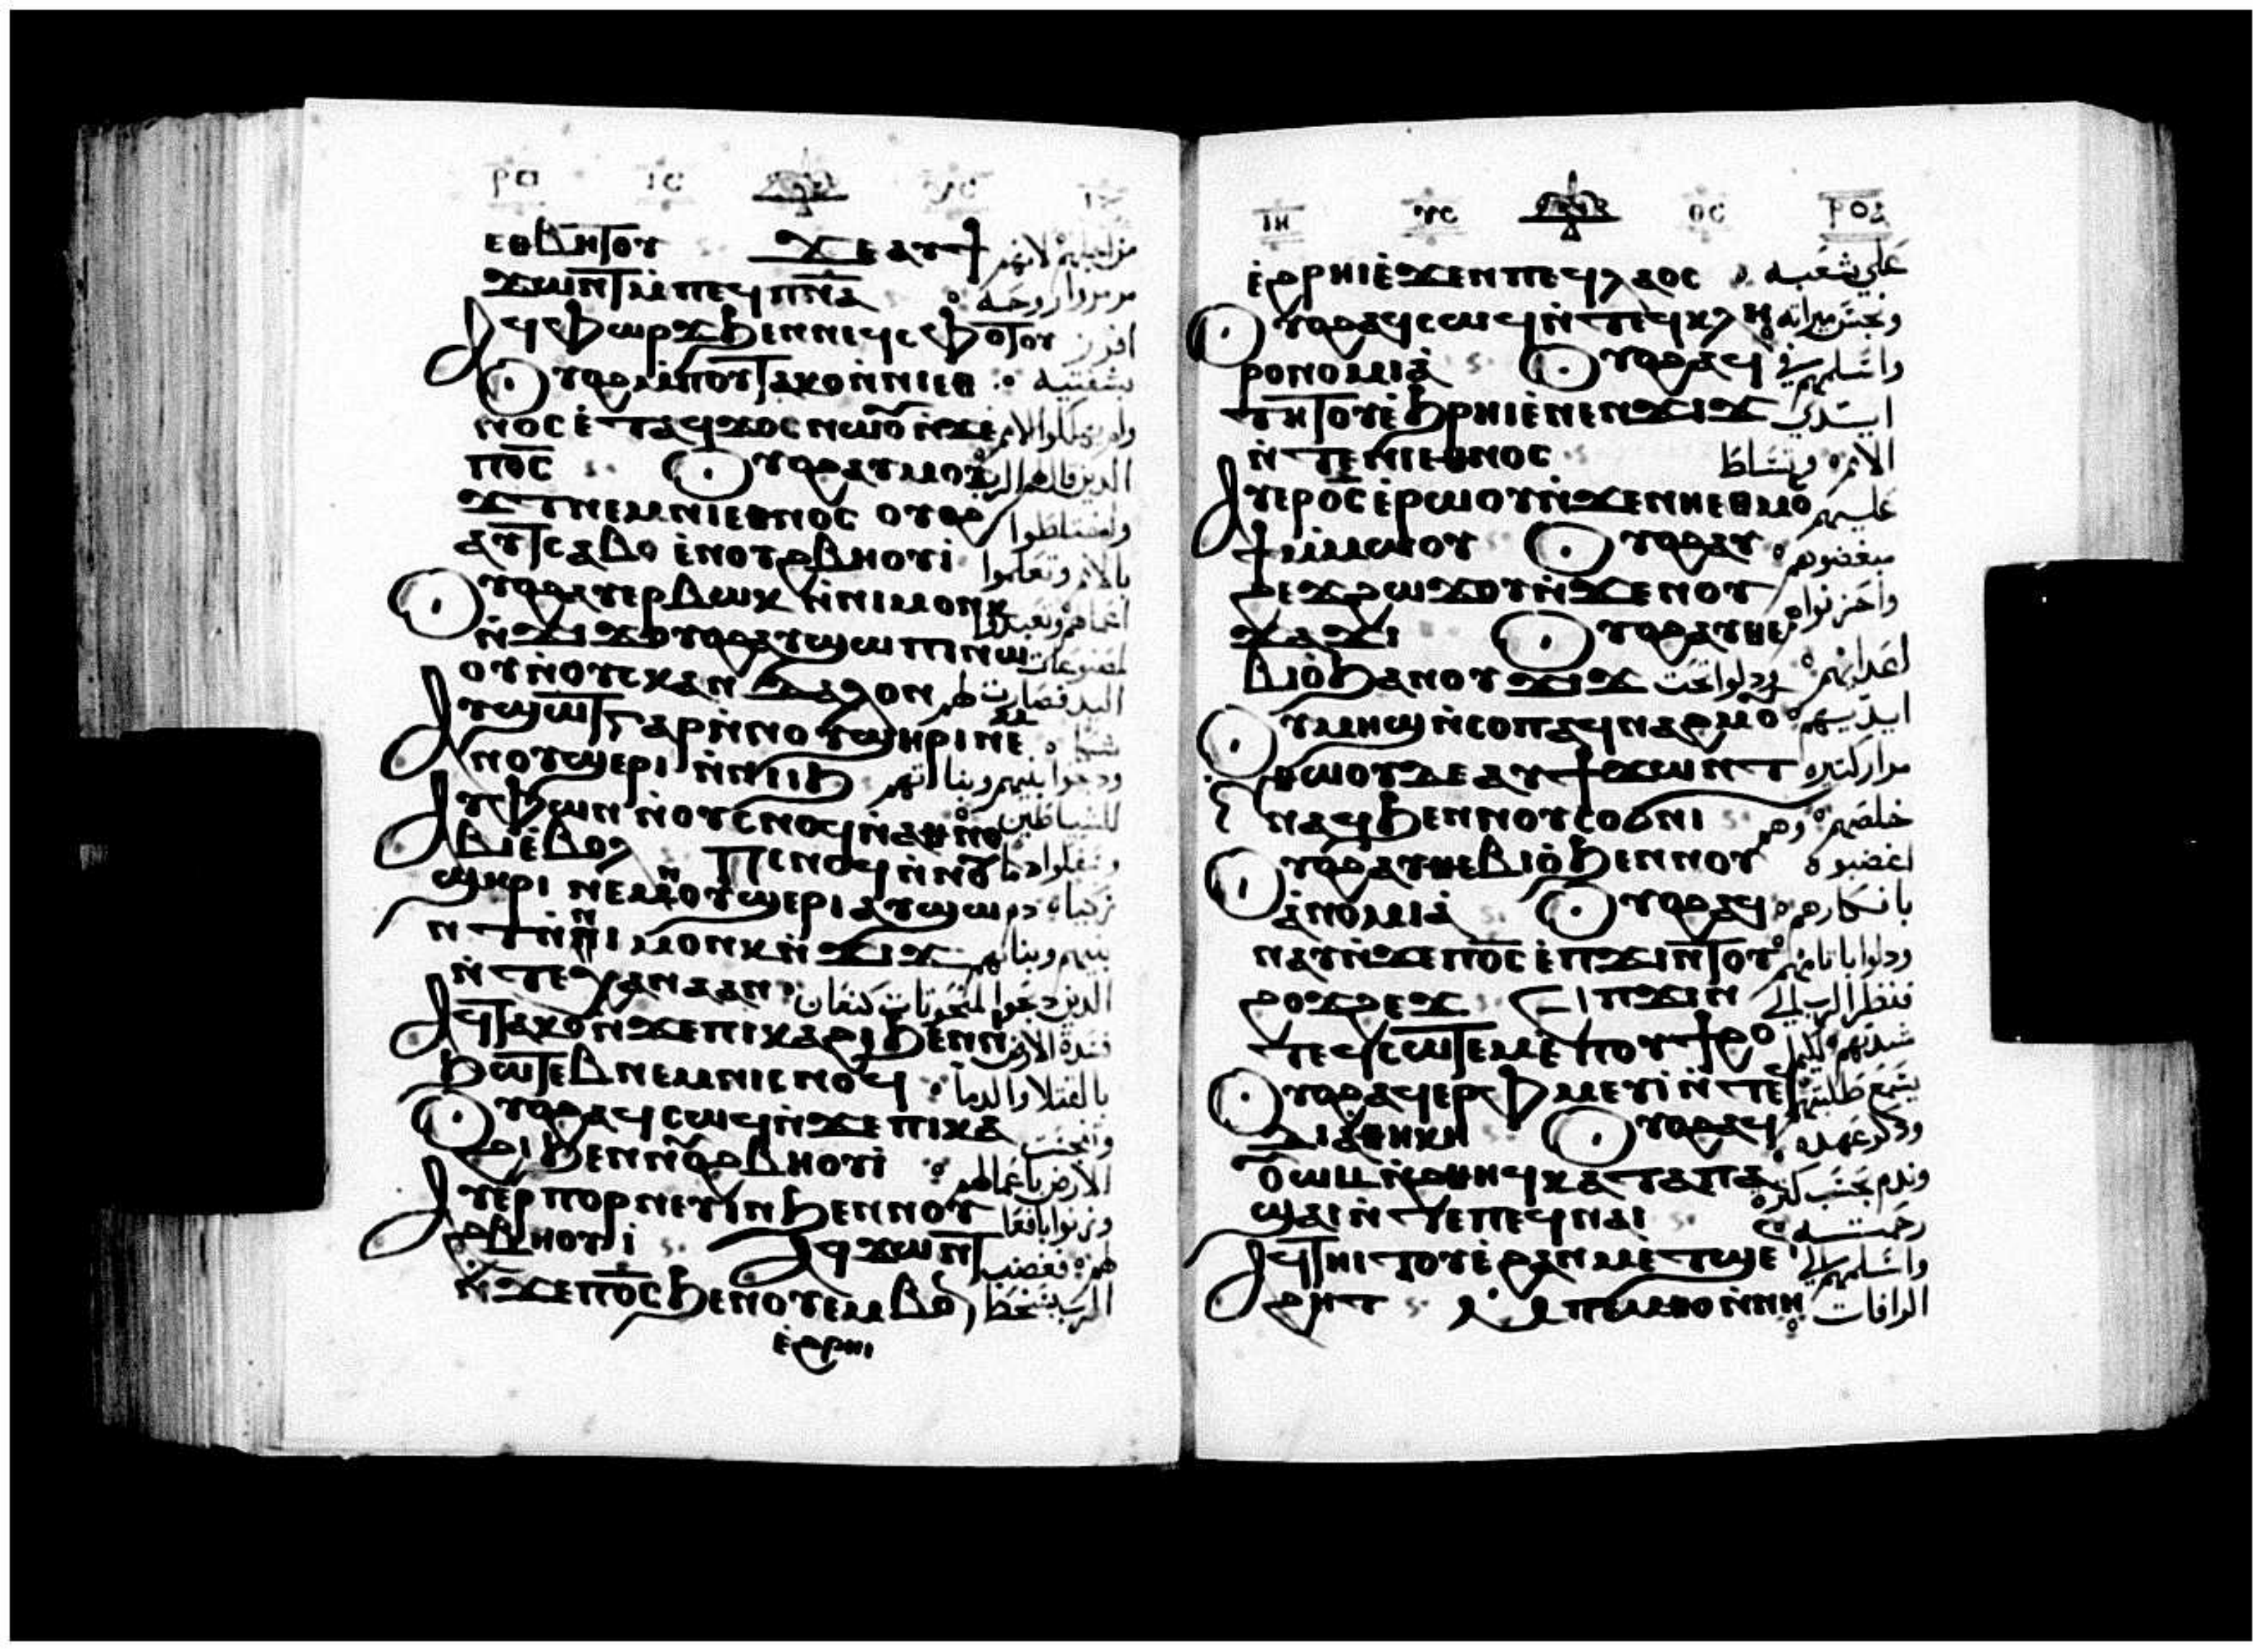 ⲉⲑⲃⲏⲧⲟⲩ ϫⲉ ⲁⲩϯ من اجلهم لانهم
ϫⲱⲛⲧ ⲙⲡⲉϥⲡⲛⲁ مرمروا روحه
ⲁϥⲫⲱⲣϫ ϧⲉⲛ ⲛⲉϥⲥⲫⲟⲧⲟⲩ افرز
ⲟⲩⲟϩ ⲙⲡⲟⲩⲧⲁⲕⲟ ⲛⲛⲓⲉⲑ بشفتيه
ⲛⲟⲥ ⲉⲧⲁϥϫⲟⲥ ⲛⲱⲟⲩ ⲛϫⲉ
ⲡⲟⲥ ⲟⲩⲟϩ ⲁⲩⲙⲟⲩ الذين قال لهم الرب
ϫⲧ ⲛⲉⲙ ⲛⲓⲉⲑⲛⲟⲥ ⲟⲩⲟϩ واختلطوا
ⲁⲩⲧⲥⲁⲃⲟ ⲉⲛⲟⲩϩⲃⲏⲟⲩⲓ بالامم وتعلموا
ⲟⲩⲟϩ ⲁⲩⲉⲣⲃⲱⲕ ⲛⲛⲓⲙⲟⲛⲕ
ⲛϫⲓϫ ⲟⲩⲟϩ ⲁⲩϣⲱⲡⲓ ⲛⲱ لمصنوعات
ⲟⲩ ⲛⲟⲩⲥⲕⲁⲛⲇⲁⲗⲟⲛ اليد فصارت لهم
ⲁⲩϣⲱⲧ ⲅⲁⲣ ⲛⲛⲟⲩϣⲏⲣⲓ ⲛⲉⲙ
ⲛⲟⲩϣⲉⲣⲓ ⲛⲛⲓⲓϧ ودبحوا بنيهم وبناتهم
ⲁⲩⲫⲱⲛ ⲛⲟⲩⲥⲛⲟϥ ⲛⲁⲑⲛⲟ للشياطين
ⲃⲓ ⲉⲃⲟⲗ ⲡⲥⲛⲟϥ ⲛⲛⲟⲩ
ϣⲏⲣⲓ ⲛⲉⲙ ⲛⲟⲩϣⲉⲣⲓ ⲁⲩϣⲱ زكياه دم
ⲛⲧ ⲛⲛⲓⲙⲟⲛⲕ ⲛϫⲓϫ بنيهم وبناتهم
ⲛⲧⲉ ⲭⲁⲛⲁⲁⲛ الذين دبحوا لمنحوتات كنعان
ⲁϥⲧⲁⲕⲟ ⲛϫⲉ ⲡⲓⲕⲁϩⲓ ϧⲉⲛ ⲛ
ϧⲱⲧⲉⲃ ⲛⲉⲙ ⲛⲓⲥⲛⲟϥ بالقتلا والدما
ⲟⲩⲟϩ ⲁϥⲥⲱϥ ⲛϫⲉ ⲡⲓⲕⲁ
ϩⲓ ϧⲉⲛ ⲛⲟⲩϩⲃⲏⲟⲩⲓ الارض باعمالهم
ⲁⲩⲉⲣⲡⲟⲣⲛⲉⲩⲓⲛ ϧⲉⲛ ⲛⲟⲩ وزنوا بافعا
ϩⲃⲏⲟⲩⲓ ⲁϥϫⲱⲛⲧ لهم فغضب
ⲛϫⲉ ⲡⲟⲥ ϧⲉⲛ ⲟⲩⲉⲙⲃⲟⲛ الرب بسخط
ⲉϩⲣⲏⲓ
ⲓⲏ ⲩⲥ ⲑⲥ ⲣⲟⲁ
ⲉϩⲣⲏⲓ ⲉϫⲉⲛ ⲡⲉϥⲗⲁⲟⲥ على شعبه
ⲟⲩⲟϩ ⲁϥⲥⲱϥ ⲛⲧⲉϥⲕⲗⲏ ونجس ميراثه
ⲣⲟⲛⲟⲙⲓⲁ ⲟⲩⲟϩ ⲁϥ واسلمهم في
ⲧⲏⲓⲧⲟⲩ ⲉϧⲣⲏⲓ ⲉⲛⲉⲛϫⲓϫ ايدي
ⲛⲧⲉ ⲛⲓⲉⲑⲛⲟⲥ الامم وتسلط
ⲁⲩⲉⲣⲟⲥ ⲉⲣⲱⲟⲩ ⲛϫⲉ ⲛⲏⲉⲑⲙⲟ عليهم
ⲥϯ ⲙⲙⲱⲟⲩ ⲟⲩⲟϩ ⲁⲩ مبغضوهم
ϩⲉϫϩⲱϫⲟⲩ ⲛϫⲉ ⲛⲟⲩ واحزنواهم
ϫⲁϫⲓ ⲟⲩⲟϩ ⲁⲩⲑⲉ اعداهم
ⲃⲓⲟ ϧⲁ ⲛⲟⲩϫⲓϫ ودلوا تحت ايديهم
ⲟⲩⲙⲏϣ ⲛⲥⲟⲡ ⲁϥⲛⲁϩⲙⲟⲩ
ⲛⲑⲱⲟⲩ ⲇⲉ ⲁⲩϯϫⲱⲛⲧ مرار كتيره
ⲛⲁϥ ϧⲉⲛ ⲛⲟⲩⲥⲟϭⲛⲓ خلصهم وهم
ⲟⲩⲟϩ ⲁⲩⲑⲉⲃⲓⲟ ϧⲉⲛ ⲛⲟⲩ اغضبوه
ⲁⲛⲟⲙⲓⲁ ⲟⲩⲟϩ ⲁϥ بافكارهم
ⲛⲁⲩ ⲛϫⲉ ⲡⲟⲥ ⲉⲡϫⲓⲛⲧⲟⲩ ودلوا باتامهم
ϩⲟϫϩⲉϫ ϧⲉⲛ ⲡϫⲓⲛ فنظر الرب الى
ⲧⲉϥⲥⲱⲧⲉⲙ ⲉⲡⲟⲩϯϩⲟ شدتهم
ⲟⲩⲟϩ ⲁϥⲉⲣⲫⲙⲉⲩⲓ ⲛⲧⲉϥ يسمع طلبتهم
ⲇⲓⲁⲑⲏⲕⲏ ⲟⲩⲟϩ ⲁϥ ودكر عهده
ⲟⲩⲱⲙ ⲛϩⲑⲏϥ ⲕⲁⲧⲁ ⲡⲁ وندم بحسب كثرة
ϣⲁⲓ ⲛⲧⲉ ⲡⲉϥⲛⲁⲓ رحمته
ⲁϥⲧⲏⲓⲧⲟⲩ ⲉϩⲁⲛⲙⲉⲧϣⲉⲛ واسلمهم الى
ϩⲏⲧ ⲙⲡⲉⲙⲑⲟ ⲛⲛⲏ الرافات